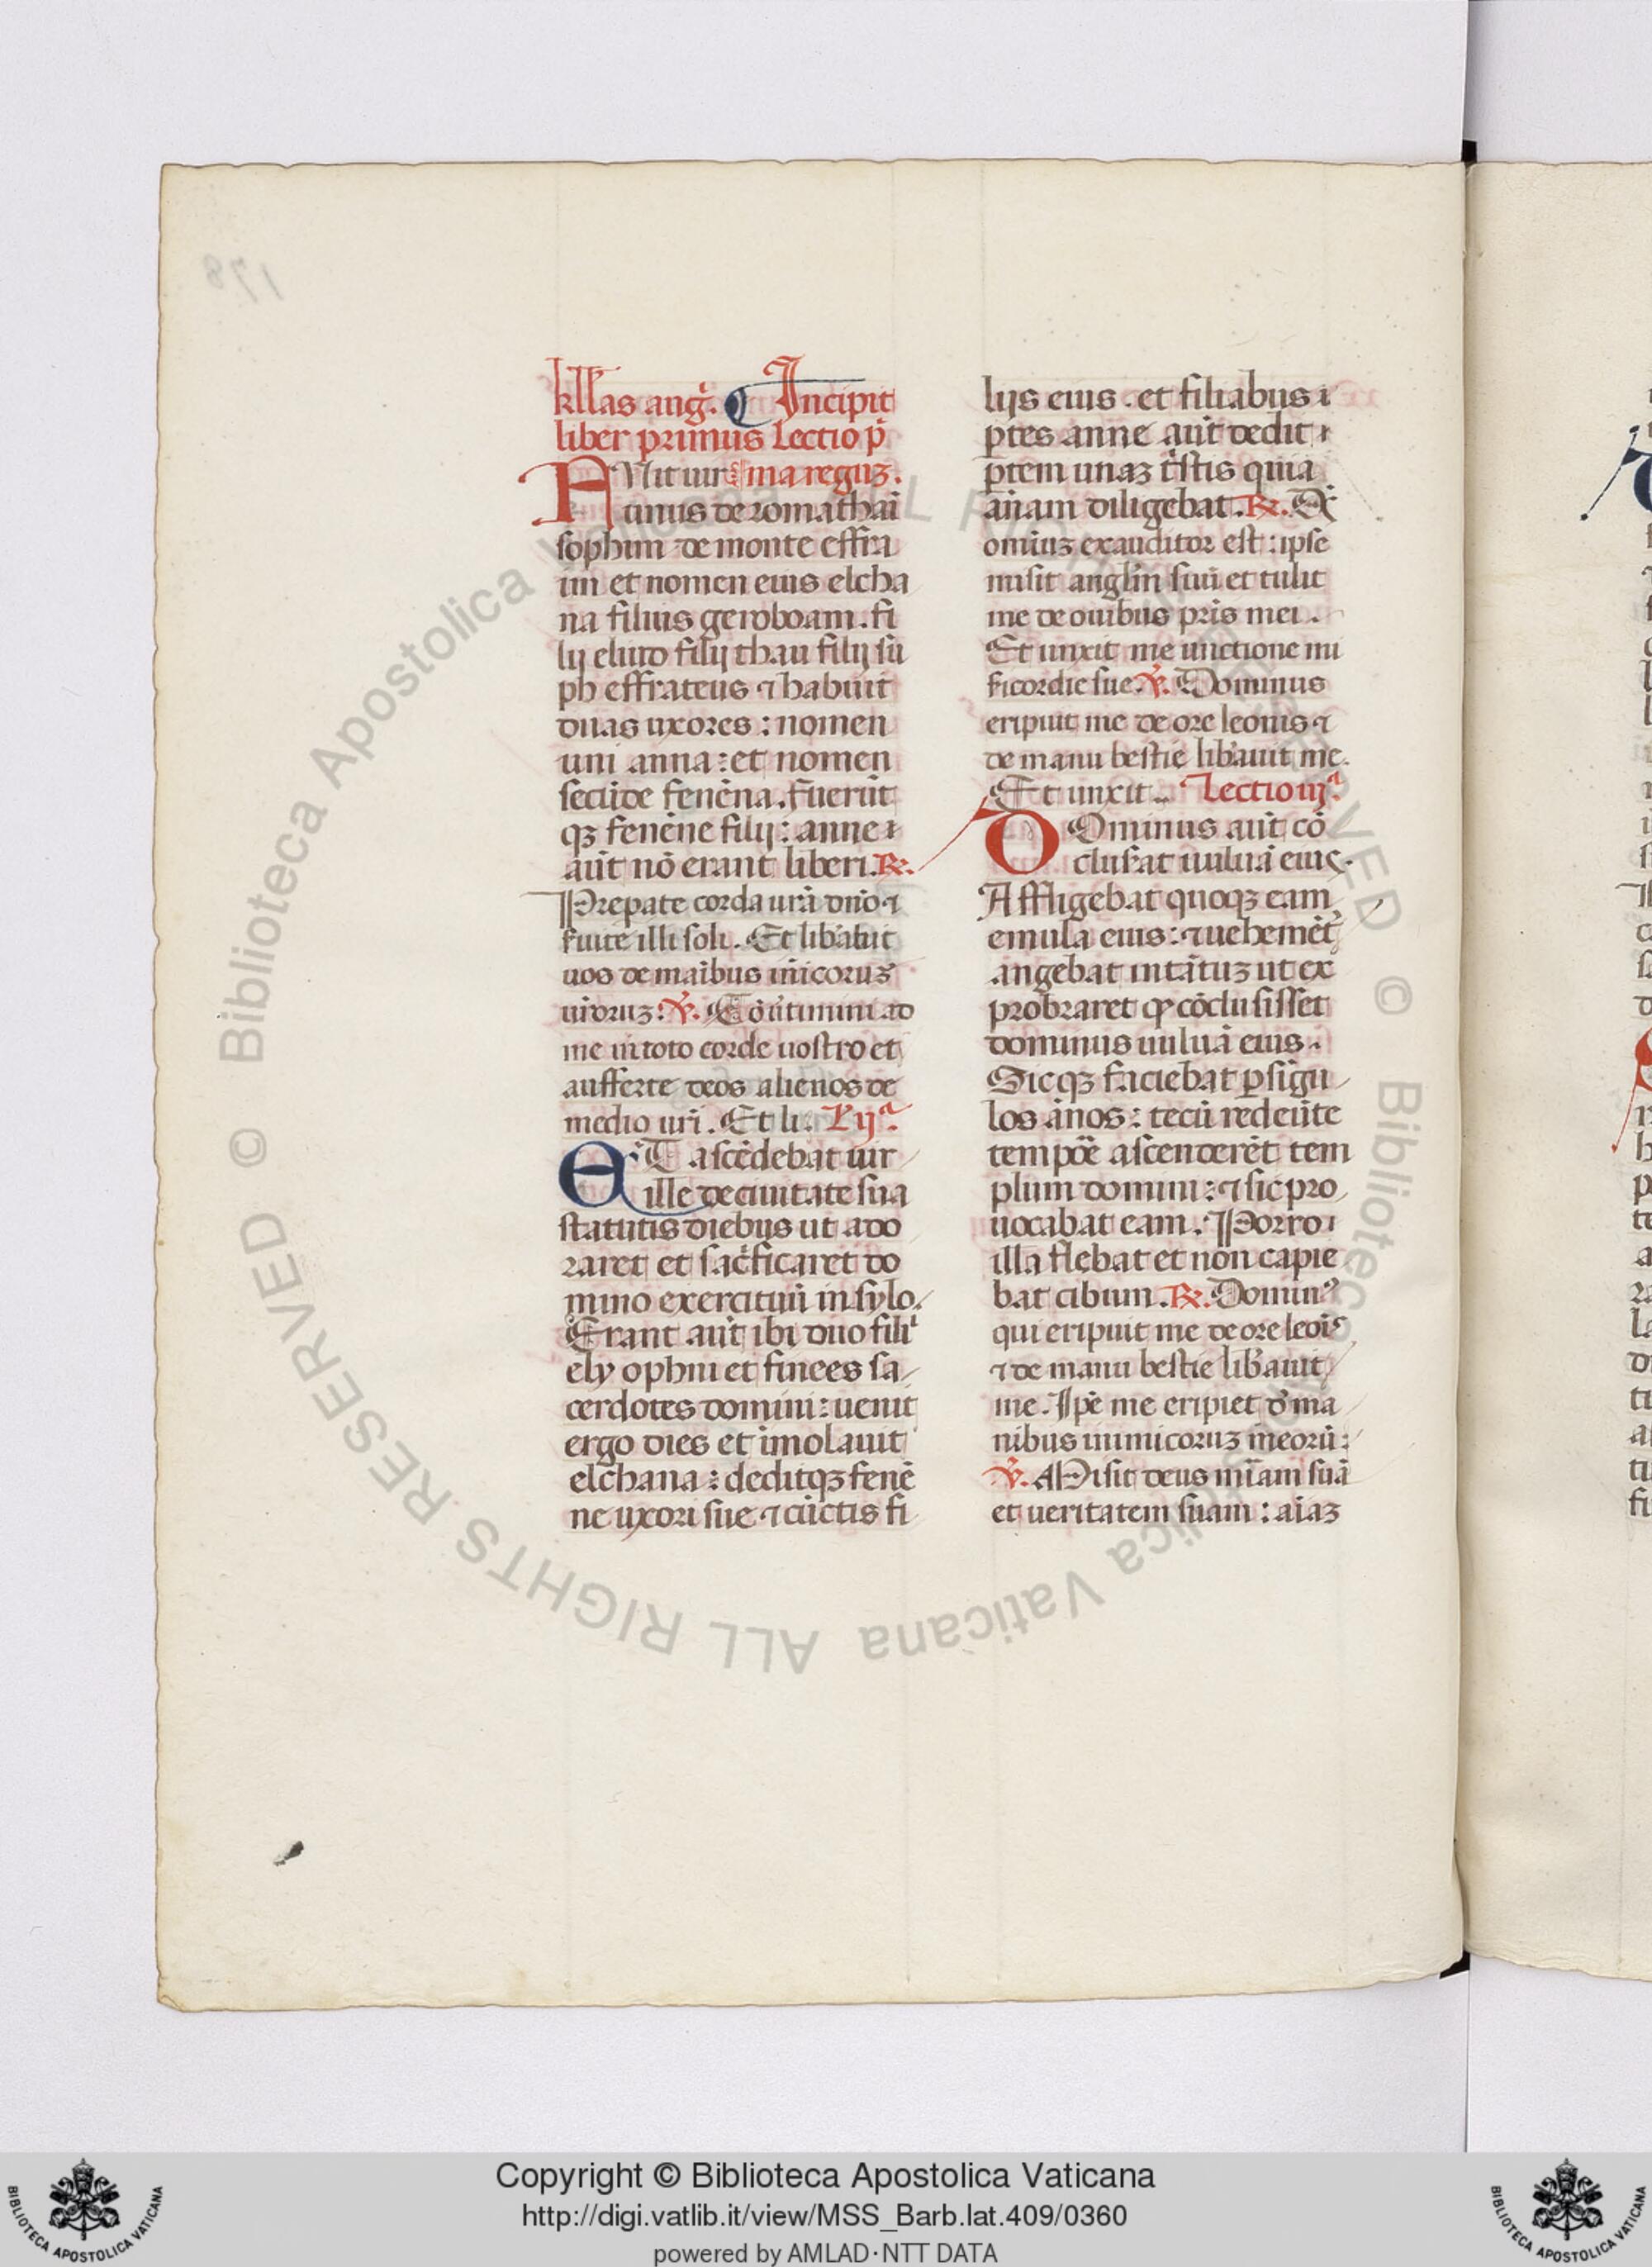 kl'las aug̃. ¶ Incipit
liber primus Lectio p̃
FVit uir ma reguꝫ.
unus de romathai
sophim de monte effra
im et nomen eius elcha
na filius geroboam. fi
lij eluid filij thau filij su
ph effrateus ⁊ habuit
duas uxores : nomen
uni anna : et nomen
secũde fenẽna. fũerũt
qꝫ fenẽne filij : anne
aũt nõ erant liberi. ℟.
Preꝑate corda urã dño ⁊
ẜuite illi soli. Et lib̃abit
uos de maĩbus inĩcoruꝫ
uroruꝫ : ℣. Cõũtimini ad
me in toto corde uostro et
aufferte deos alienos de
medio uri. Et li. L̃ ijᵃ.
ET ascẽdebat uir
ille de ciuitate sua
statutis diebus ut ado
raret et sac̃ficaret do
mino exercituũ in sylo.
Erant aũt ibi duo filiⁱ
ely ophni et finees sa
cerdotes domini : uenit
ergo dies et imolauit
elchana : deditqꝫ fenẽ
ne uxori sue ⁊ cũctis fi
lijs eius . et filiabus
ꝑtes anne aũt dedit
ꝑtem unaꝫ tr̃istis quia
añam diligebat. ℟. D
omiuꝫ exauditor est : ipse
misit angl'm suũ et tulit
me de ouibus pr̃is mei .
Et unxit me unctione mi
ẜicordie sue. ℣. Dominus
eripuit me de ore leonis ⁊
de manu bestie lib̃auit me.
Et unxit .. Lectio iijᵃ.
DOminus aũt cõ
cluserat uuluã eius.
Affligebat quoqꝫ eam
emula eius : ⁊ uehemẽt̃
angebat intãtuꝫ ut ex
probraret ꝙ cõclusisset
dominus uuluã eius .
Sicqꝫ faciebat ꝑ sĩgu
los ãnos : tecũ redeũte
tempõe ascenderẽt tem
plum domini : ⁊ sic pro
uocabat eam. Porro
illa flebat et non capie
bat cibum. ℟. Dominꝰ
qui eripuit me de ore leoĩs
⁊ de manu bestie lib̃auit
me. Ipẽ me eripiet d̃ ma
nibus inimicoruꝫ meorũ :
℣. Misit deus mĩam suã
et ueritatem suam : aĩaꝫ
178
© Biblioteca Apostolica Vaticana ALL RIGHTS RESERVED © Biblioteca Apostolica Vaticana ALL RIGHTS RESERVED
Copyright © Biblioteca Apostolica Vaticana
http://digi.vatlib.it/view/MSS_Barb.lat.409/0360
powered by AMLAD·NTT DATA
BIBLIOTECA APOSTOLICA VATICANA
BIBLIOTECA APOSTOLICA VATICANA